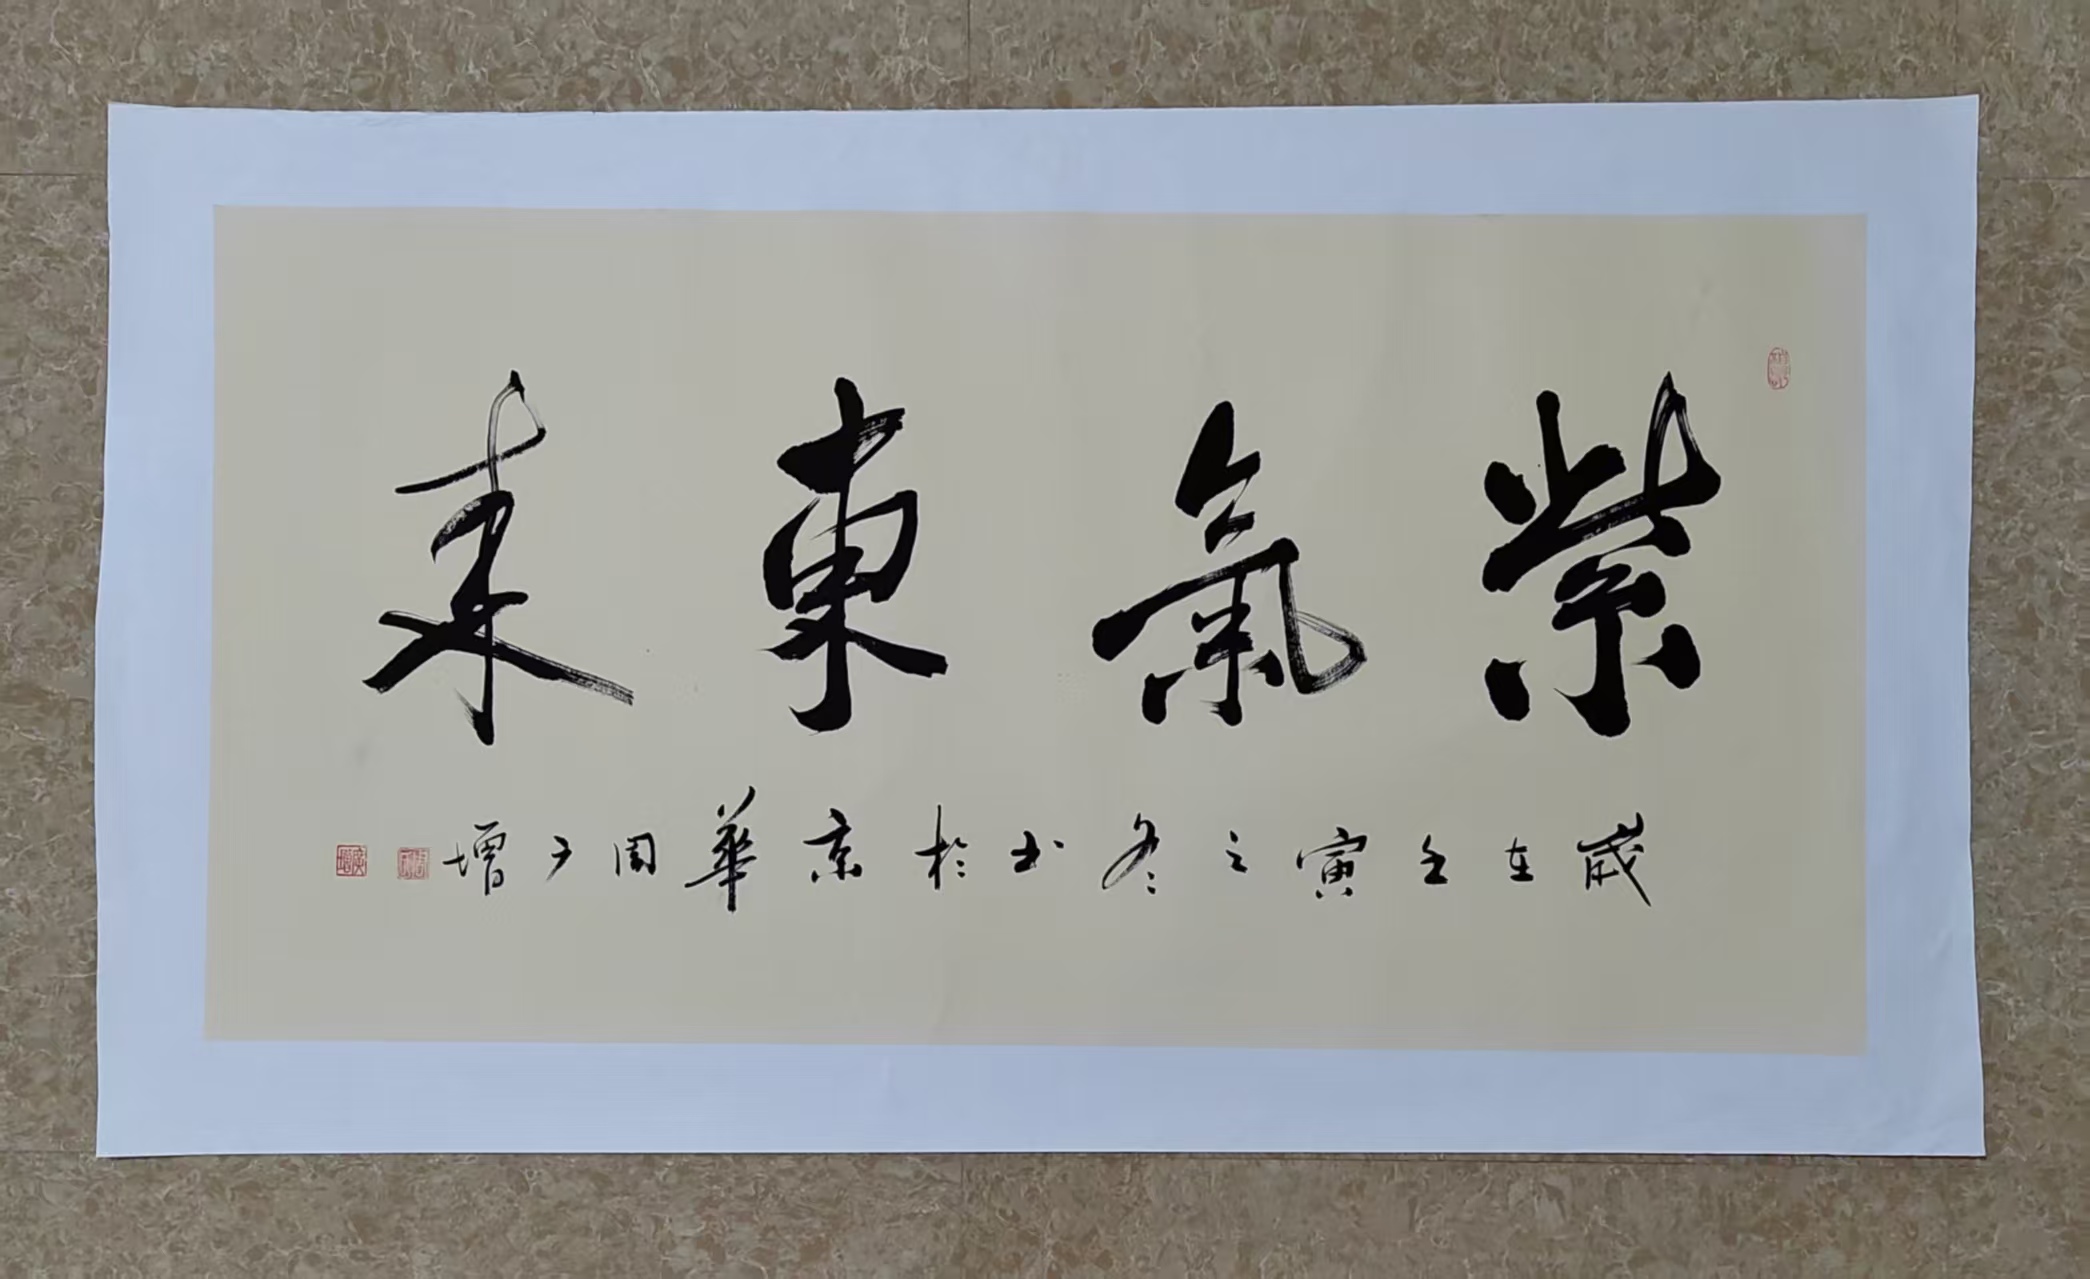 紫氣東來
歲在壬寅之冬書於京華周广增